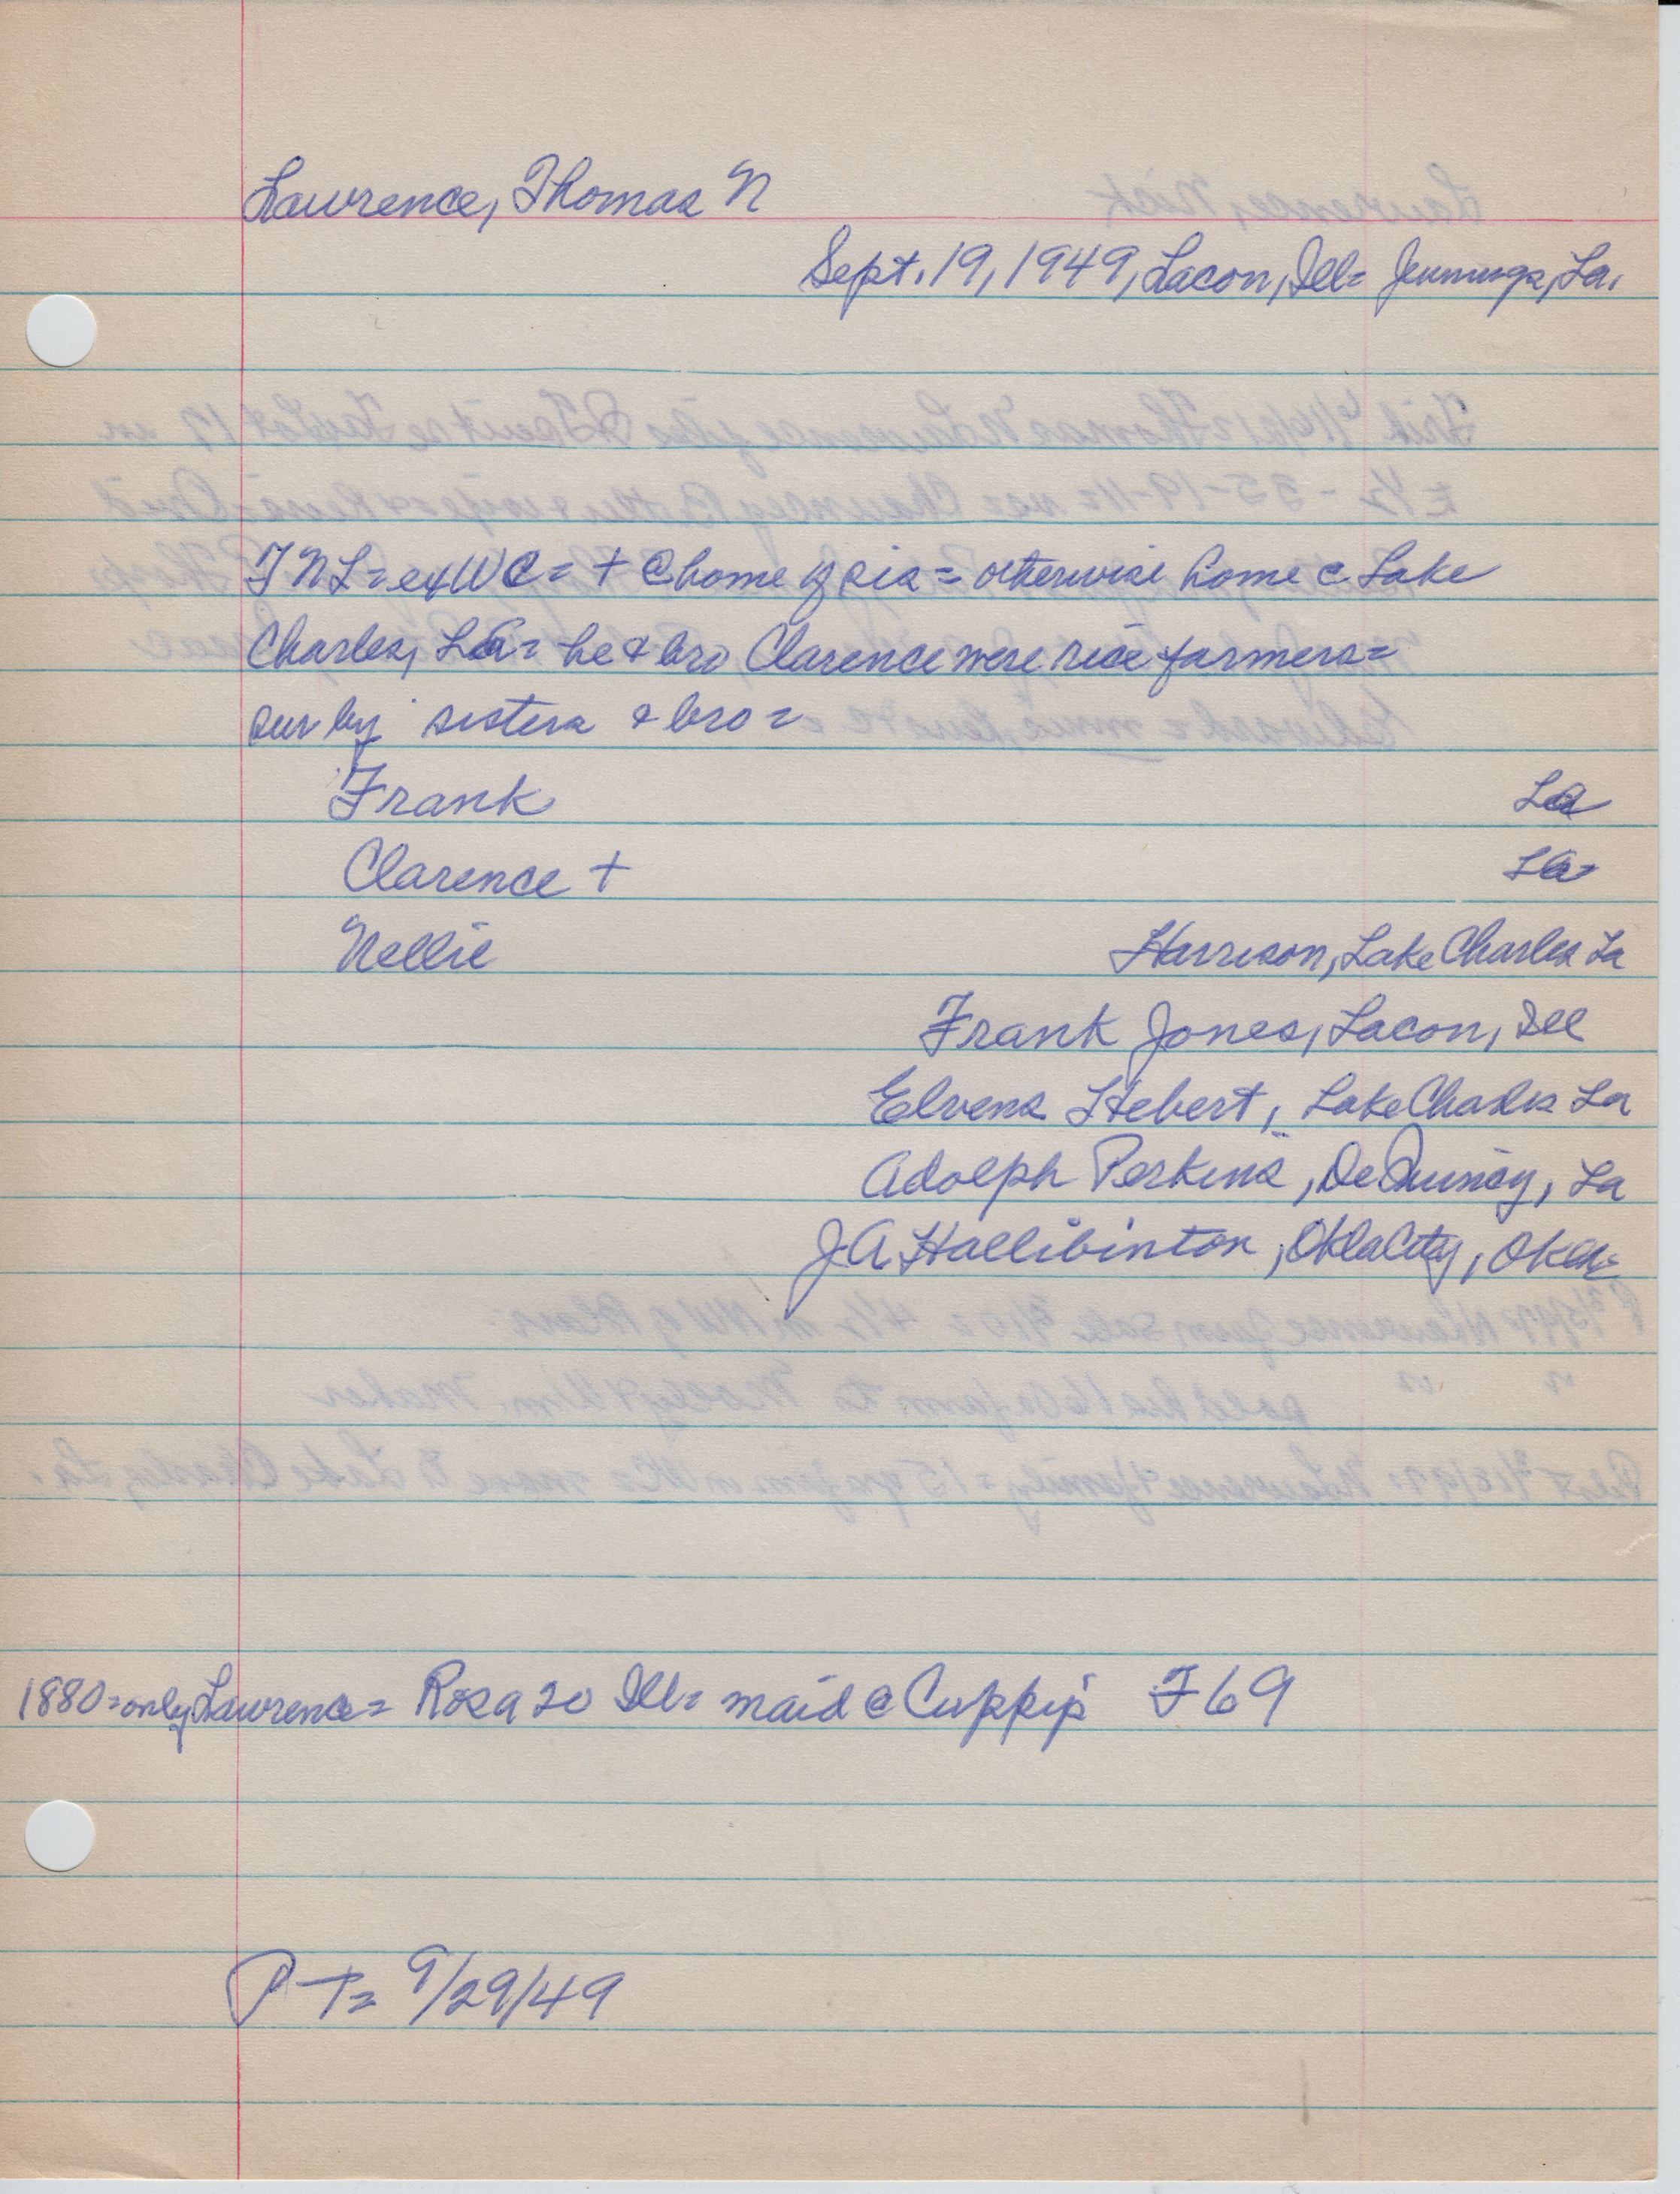 Lawrence, Thomas N
Sept. 19, 1949, Lacon, Ill= Jennings, La.
TNL= exWC= + @ home of sis= otherwise home @ Lake
Charles, La= he & bro Clarence were rice farmers=
sur by sisters & bro=
Frank La
Clarence + La=
Nellie Harrison, Lake Charles La
Frank Jones, Lacon, Ill
Elvena Hebert, Lake Charles La
Adolph Perkins, De Quincy, La
J A Hallibinton, Okla City, Okla=
1880= only Lawrence= Rosa 20 Ill= maid @ Cuppy's F69
P T= 9/29/49